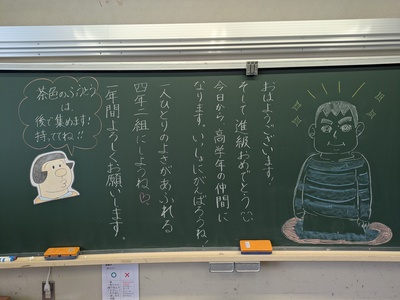 おはようございます!
そして進級おめでとう
今日から高学年の仲間に
なります。いっしょにがんばろうね!
一人ひとりのよさがあふれる
四年二組にしようね♡
一年間よろしくお願いします。
茶色のふうとう
は
後で集めます!
持っててね!!